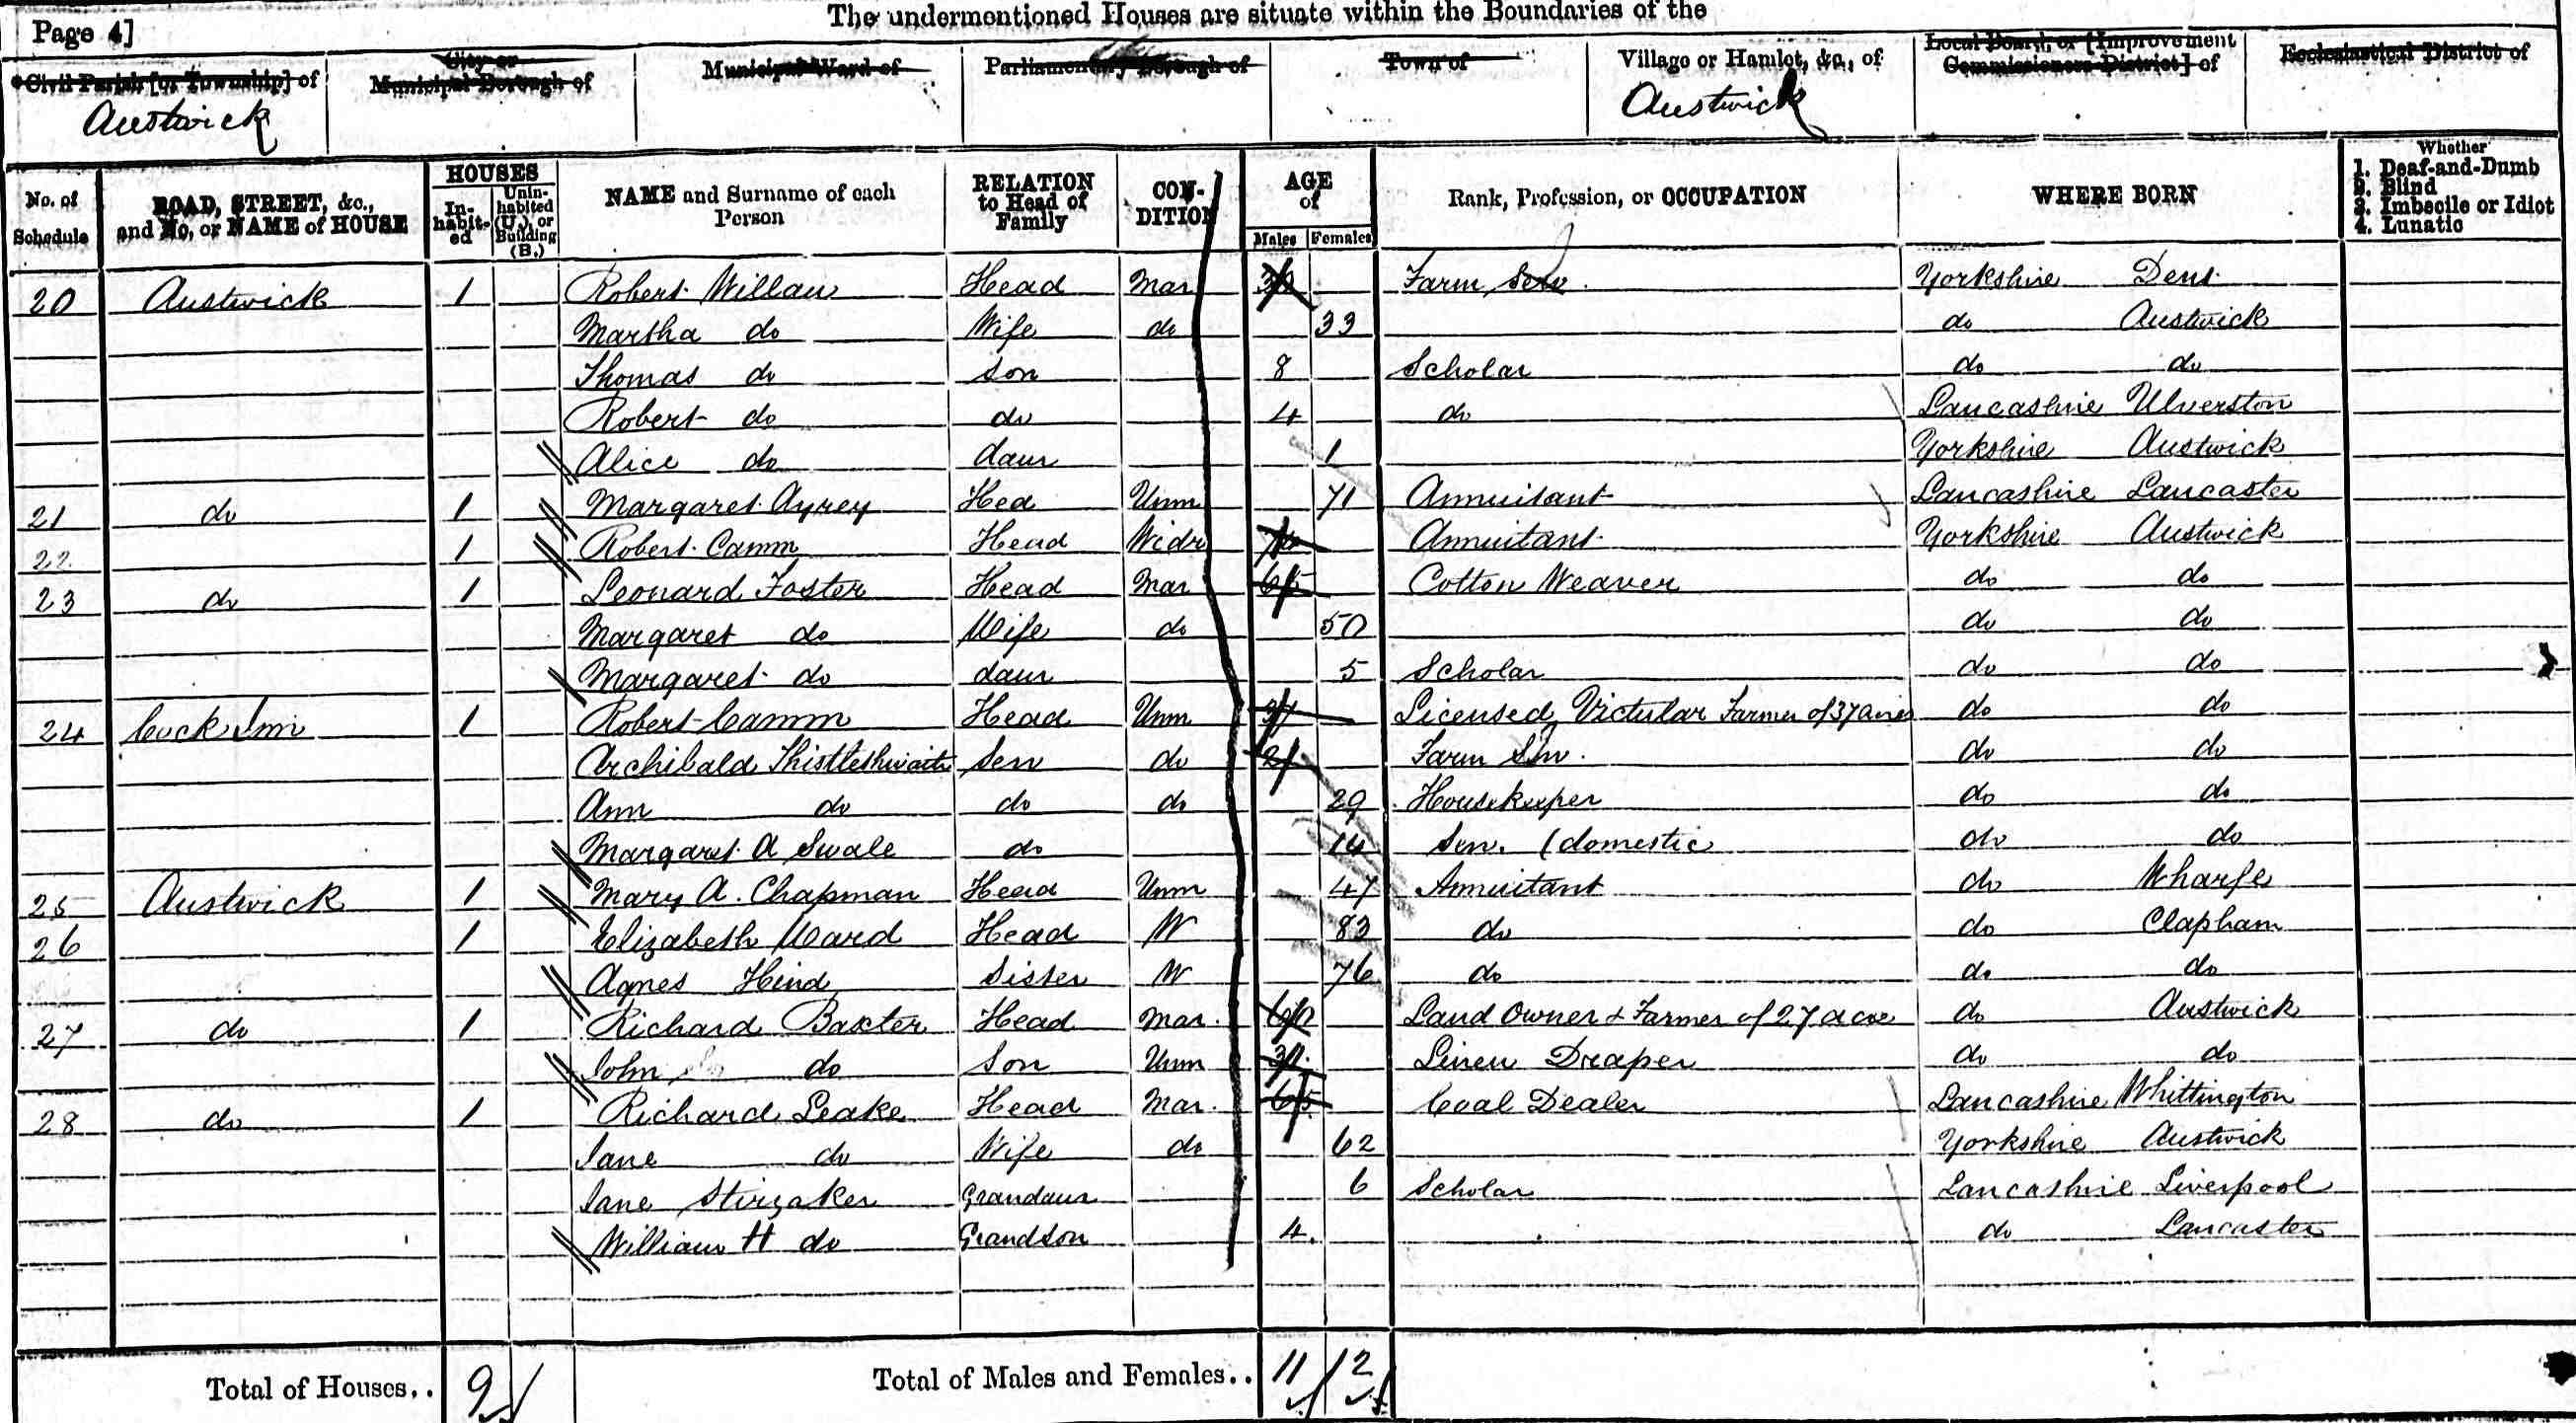 The undermentioned Houses are situate within the Boundaries of the
Page 4]
Civil Parish [or Township] of
City or Municipal Borough of
Municipal Ward of
Parliamentary Borough of
Town of
Village or Hamlet, &c., of
Local Board, or [Improvement Commissioners District] of
Ecclesiastical District of
Austwick
Austwick
No. of Schedule
ROAD, STREET, &c., and No. or NAME of HOUSE
HOUSES
In-habit-ed
Unin-habited (U.), or Building (B.)
NAME and Surname of each Person
RELATION to Head of Family
CON-DITION
AGE of
Males
Females
Rank, Profession, or OCCUPATION
WHERE BORN
Whether
1. Deaf-and-Dumb
2. Blind
3. Imbecile or Idiot
4. Lunatic
20 Austwick 1 Robert Willan Head Mar Farm Serv Yorkshire Dent
Martha do Wife do 33 do Austwick
Thomas do Son 8 Scholar do do
Robert do do 4 do Lancashire Ulverston
Alice do daur 1 Yorkshire Austwick
21 do 1 Margaret Ayrey Hed Unm 71 Annuitant Lancashire Lancaster
22 1 Robert Camm Head Widr Annuitant Yorkshire Austwick
23 do 1 Leonard Foster Head Mar 65 Cotton Weaver do do
Margaret do Wife do 50 do do
Margaret do daur 5 Scholar do do
24 Cock Inn 1 Robert Camm Head Unm 37 Licensed Victular Farmer of 37 acres do do
Archibald Thistlethwaite Serv do 21 Farm Serv. do do
Ann do do do 29 Housekeeper do do
Margaret A Swale do 14 Serv. (domestic do do
25 Austwick 1 Mary A. Chapman Head Unm 47 Annuitant do Wharfe
26 1 Elizabeth Ward Head W 83 do do Clapham
Agnes Hind Sister W 76 do do do
27 do 1 Richard Baxter Head Mar. Land Owner & Farmer of 27 acre do Austwick
John do Son Unm Linen Draper do do
28 do 1 Richard Leake Head Mar. 65 Coal Dealer Lancashire Whittington
Jane do Wife do 62 Yorkshire Austwick
Jane Stirzaker Grandaur 6 Scholar Lancashire Liverpool
William H do Grandson 4. do Lancaster
Total of Houses.. 9
Total of Males and Females.. 11 12